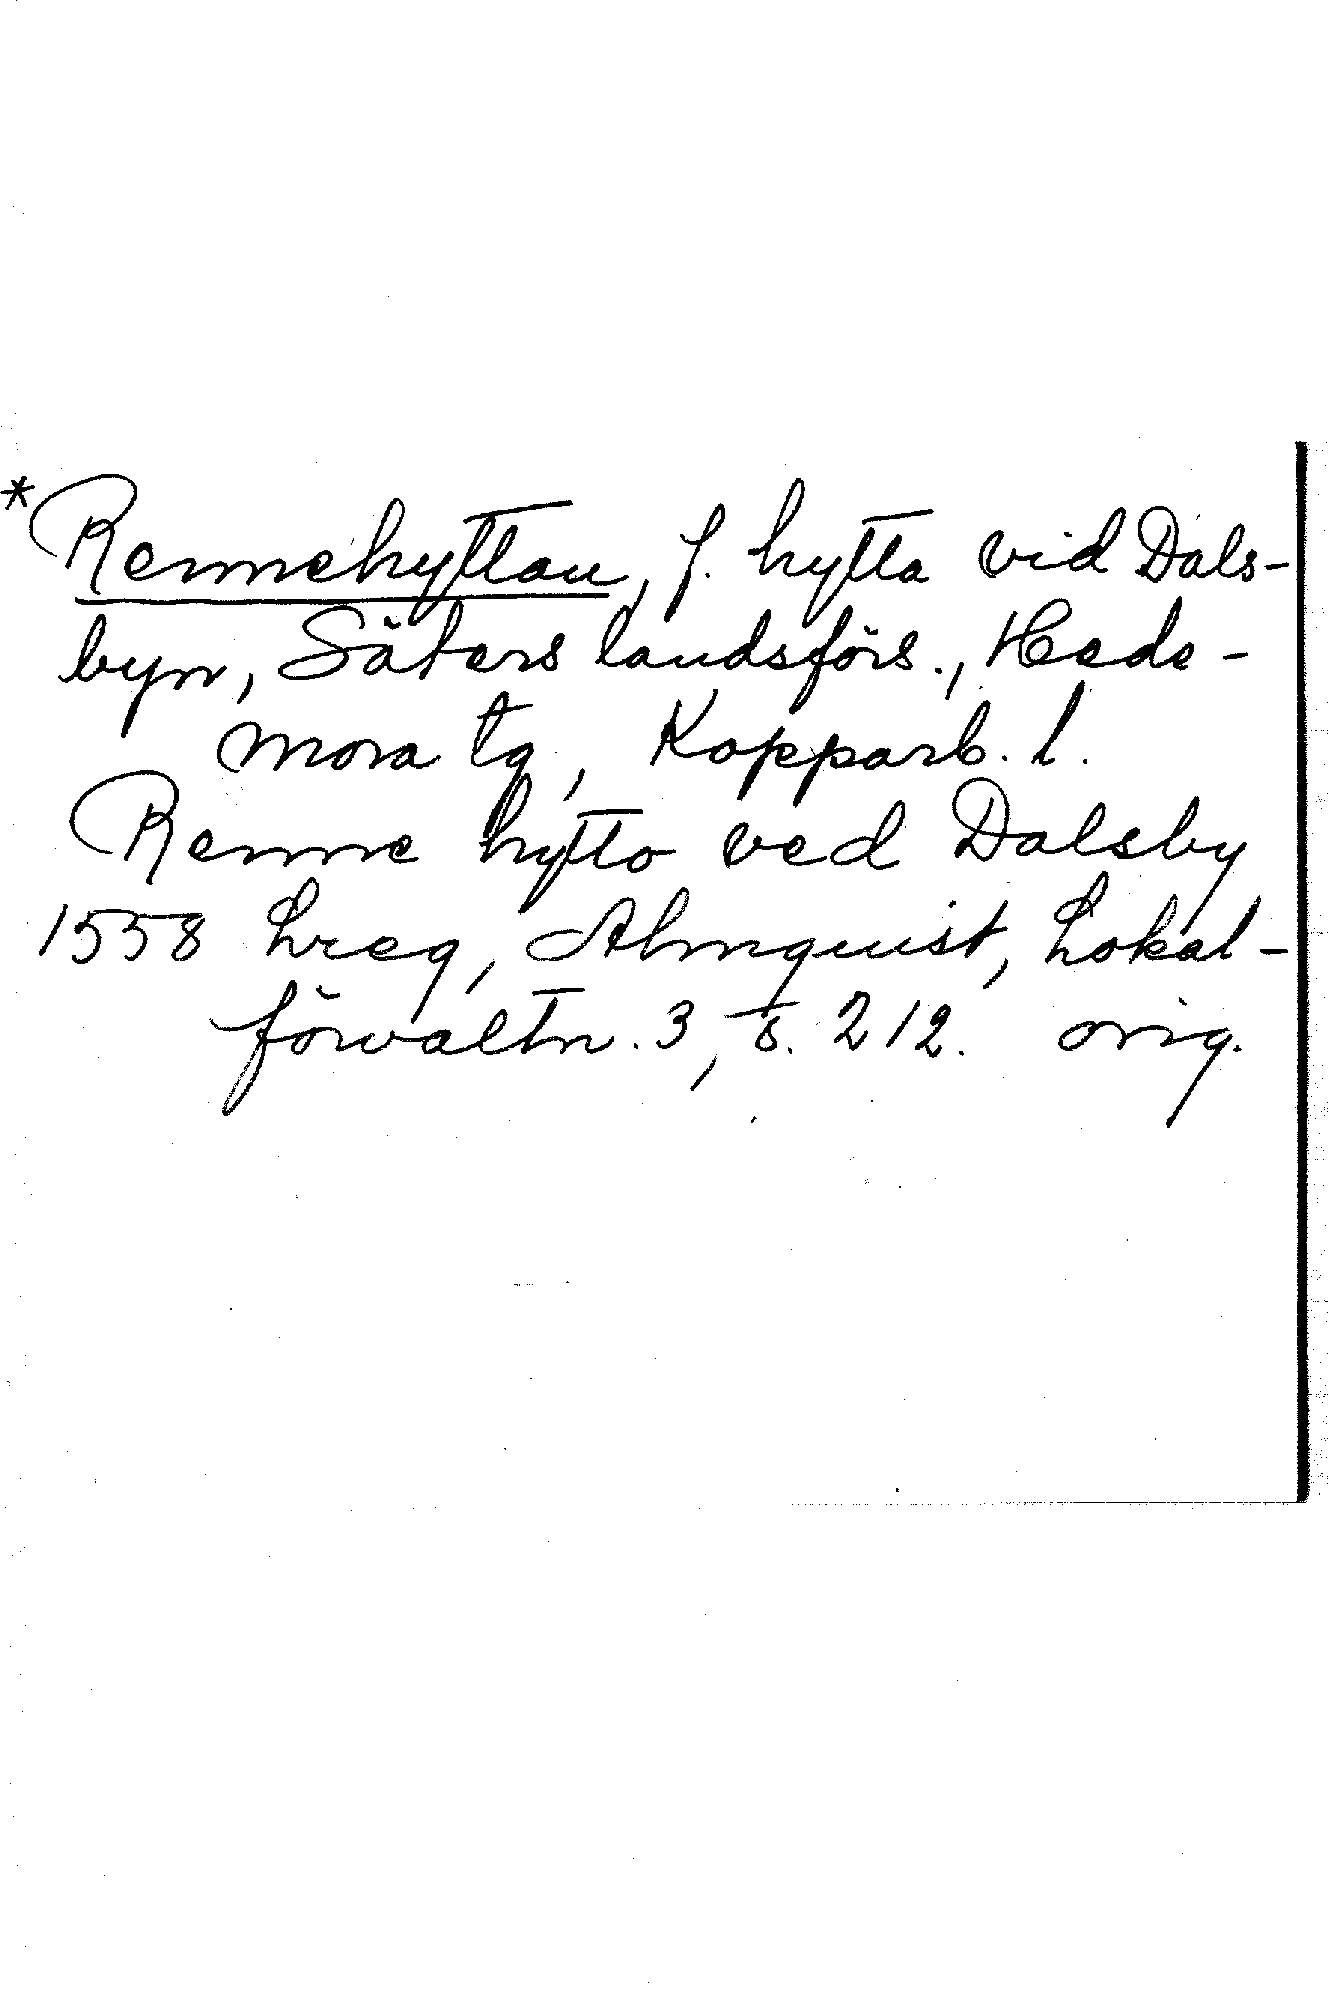 *Rennehyttan, f. hytta vid Dals-
byn, Säters landsförs., Hede-
mora tg, Kopparb. l.
Renne hytto ved Dalsby
1558 Lreg, Almquist, Lokal-
förvaltn. 3, s. 212. orig.